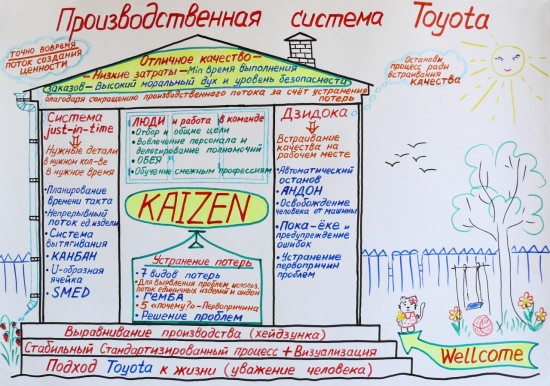 Производственная система Toyota
точно вовремя
поток создания
ценности
Останови
процесс ради
встраивания
качества
Отличное качество–
–Низкие затраты–Min время выполнения
заказов–Высокий моральный дух и уровень безопасности
благодаря сокращению производственного потока за счёт устранения
потерь
Система
just-in-time
Нужные детали
в нужном кол-ве
в нужное время
Планирование
времени такта
Непрерывный
поток ед.изделий
Система
вытягивания
КАНБАН
U-образная
ячейка
SMED
ЛЮДИ и работа в команде
Отбор и общие цели
Вовлечение персонала и
делегирование полномочий
ОБЕЯ
Обучение смежным профессиям
KAIZEN
Устранение потерь
7 видов потерь
Для выявления проблем использ.
поток единичных изделий и андон
ГЕМБА
5 «почему?»-Первопричина
Решение проблем
Дзидока
Встраивание
качества на
рабочем месте
Автоматический
останов
АНДОН
Освобождение
человека от машины
Пока-ёке и
предупреждение
ошибок
Устранение
первопричин
проблем
Выравнивание производства (хейдзунка)
Стабильный Стандартизированный процесс + Визуализация
Подход Toyota к жизни (уважение человека)
Wellcome